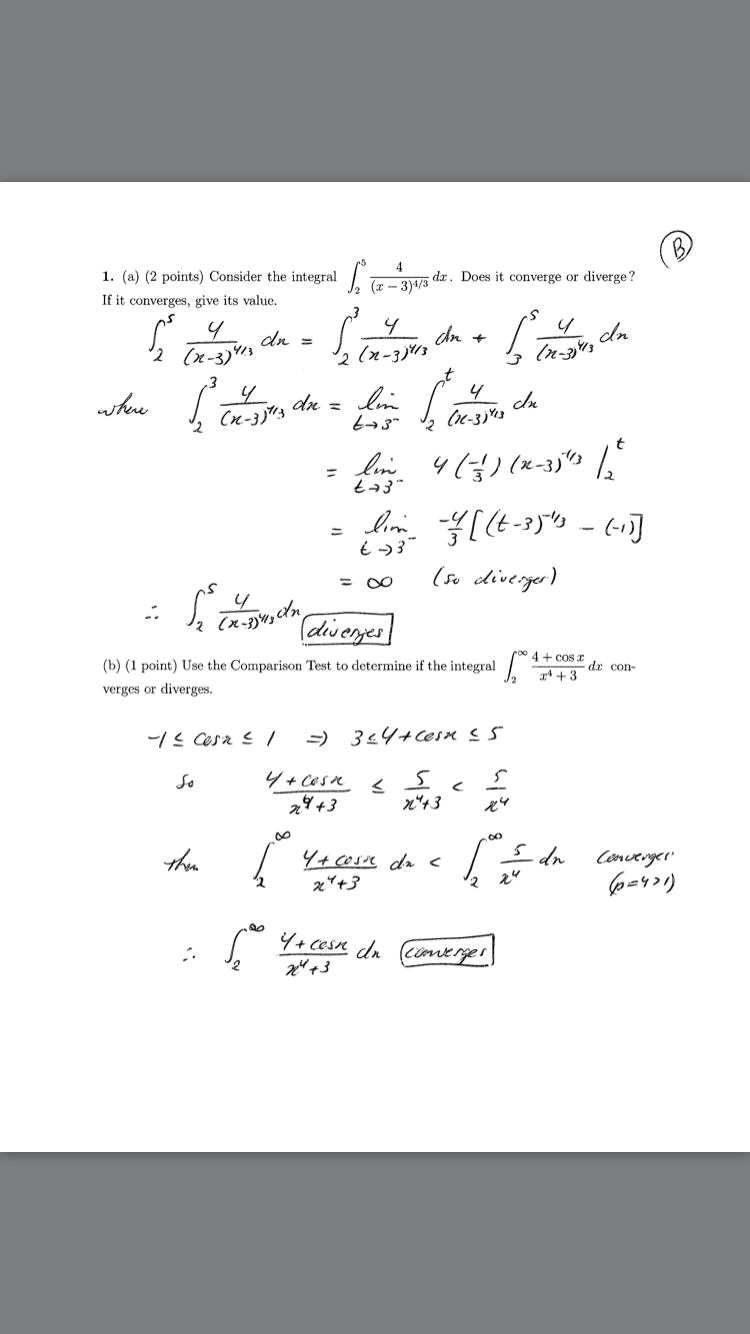 B
1. (a) (2 points) Consider the integral ∫_2^5 4/(x − 3)^{4/3} dx. Does it converge or diverge?
If it converges, give its value.
∫_2^5 4/(x-3)^{4/3} dx = ∫_2^3 4/(x-3)^{4/3} dx + ∫_3^5 4/(x-3)^{4/3} dx
where ∫_2^3 4/(x-3)^{4/3} dx = lim_{t→3^-} ∫_2^t 4/(x-3)^{4/3} dx
= lim_{t→3^-} 4 (-1/3) (x-3)^{-1/3} |_2^t
= lim_{t→3^-} -4/3 [(t-3)^{-1/3} - (-1)]
= ∞ (so diverges)
∴ ∫_2^5 4/(x-3)^{4/3} dx diverges
(b) (1 point) Use the Comparison Test to determine if the integral ∫_2^∞ (4 + cos x)/(x^4 + 3) dx con-
verges or diverges.
-1 ≤ cosx ≤ 1 ⇒ 3 ≤ 4+cosx ≤ 5
So (4+cosx)/(x^4+3) ≤ 5/(x^4+3) < 5/x^4
then ∫_2^∞ (4+cosx)/(x^4+3) dx < ∫_2^∞ 5/x^4 dx converges
(p=4>1)
∴ ∫_2^∞ (4+cosx)/(x^4+3) dx converges